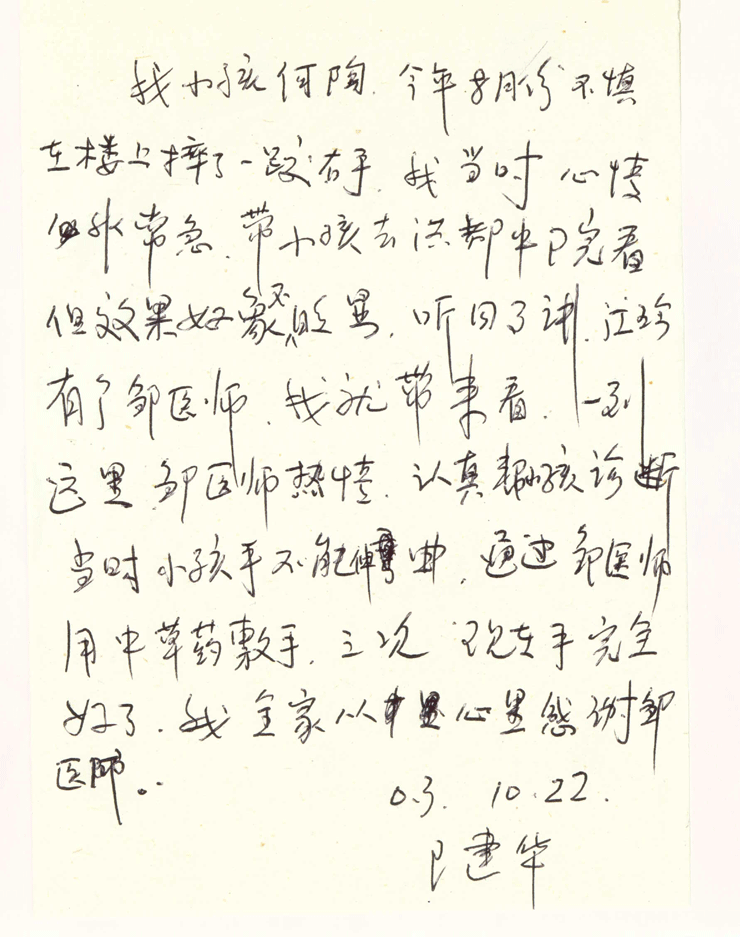 我小孩何陶.今年8月份不慎
在楼上摔了一跤右手.我当时心情
非常急.带小孩去 都中医院看
但效果好象不明显.听日了讲.江
有了邹医师.我就带来看.一到
这里.邹医师热情.认真帮小孩诊断
当时小孩手不能伸弯曲.通过邹医师
用中草药敷手.三次 现在手完全
好了.我全家从心里感谢邹
医师..
03. 10.22.
建华